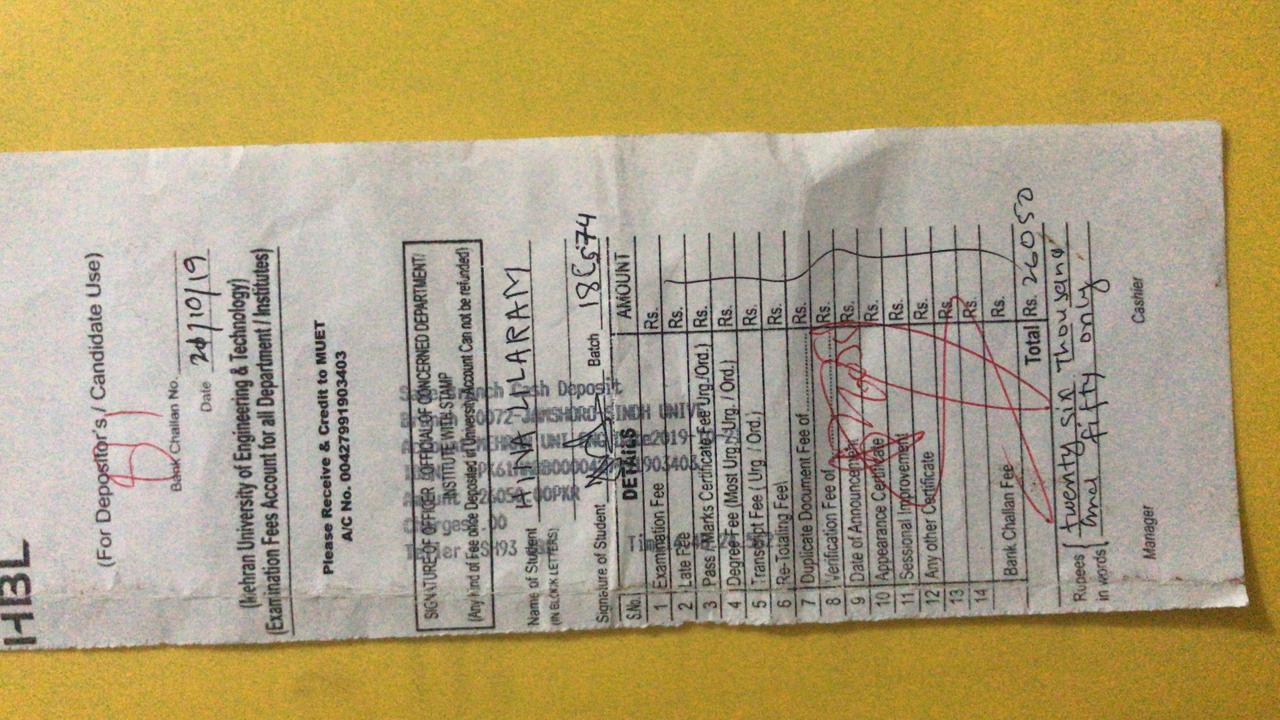 HBL
(For Depositor's / Candidate Use)
Bank Challan No.
Date 21/10/19
(Mehran University of Engineering & Technology)
(Examination Fees Account for all Department / Institutes)
Please Receive & Credit to MUET
A/C No. 00427991903403
SIGNATURE OF OFFICER / OFFICIAL OF CONCERNED DEPARTMENT/
INSTITUTE WITH STAMP
(Any kind of Fee once Deposited in University Account Can not be refunded)
Cash Deposit
JAMSHORO SINDH UNIV
Name of Student LARAM
(IN BLOCK LETTERS)
Signature of Student Batch
S.No. DETAILS AMOUNT
1 Examination Fee Rs.
2 Late Fee Rs.
3 Pass / Marks Certificate Fee Urg./Ord.) Rs.
4 Degree Fee (Most Urg./ Urg. / Ord.) Rs.
5 Transcript Fee ( Urg / Ord.) Rs.
6 Re-Totaling Fee Rs.
7 Duplicate Document Fee of Rs.
8 Verification Fee of Rs.
9 Date of Announcement Rs.
10 Appearance Certificate Rs.
11 Sessional Improvement Rs.
12 Any other Certificate Rs.
13 Rs.
14 Rs.
Bank Challan Fee Rs.
Total Rs. 26050
Rupees twenty six Thousand
in words and fifty only
Manager Cashier